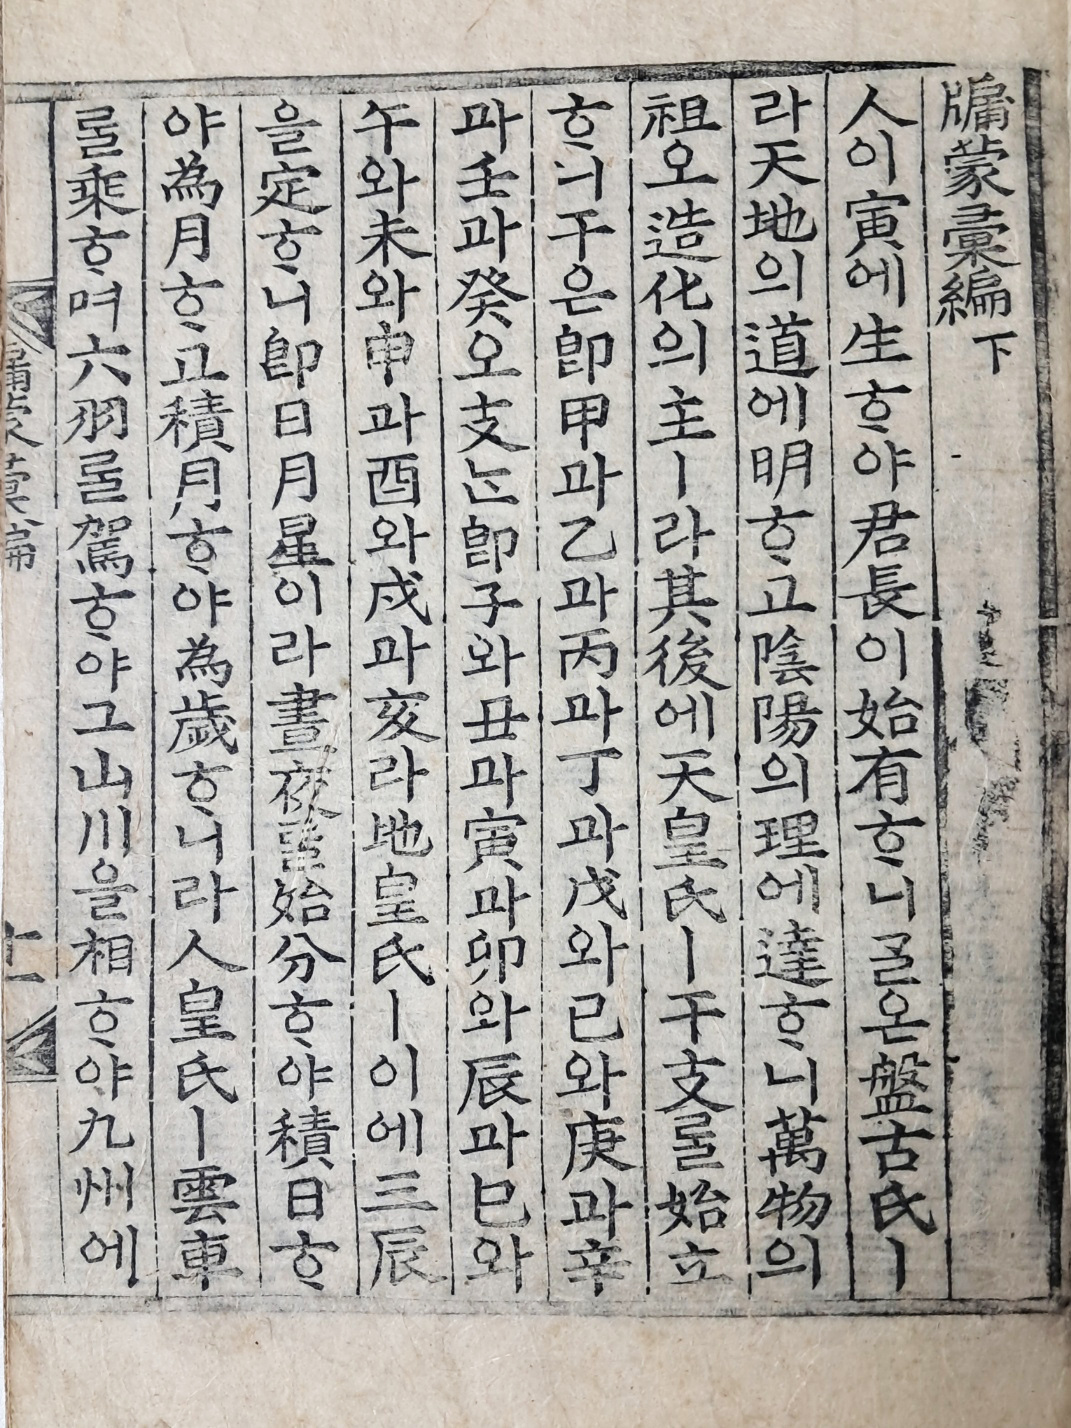 牖蒙彙編 下
人이寅에生ᄒᆞ야君長이始有ᄒᆞ니ᄀᆞᆯ온盤古氏ㅣ
라天地의道에明ᄒᆞ고陰陽의理에達ᄒᆞ니萬物의
祖오造化의主ㅣ라其後에天皇氏ㅣ干支ᄅᆞᆯ始立
ᄒᆞ니干은卽甲과乙과丙과丁과戊와己와庚과辛
과壬과癸오支ᄂᆞᆫ卽子와丑과寅과卯와辰과巳와
午와未와申과酉와戌과亥라地皇氏ㅣ이에三辰
을定ᄒᆞ니卽日月星이라晝夜ᄅᆞᆯ始分ᄒᆞ야積日ᄒᆞ
야為月ᄒᆞ고積月ᄒᆞ야為歲ᄒᆞ니라人皇氏ㅣ雲車
ᄅᆞᆯ乘ᄒᆞ며六羽ᄅᆞᆯ駕ᄒᆞ야그山川을相ᄒᆞ야九州에
牖蒙彙編
十一